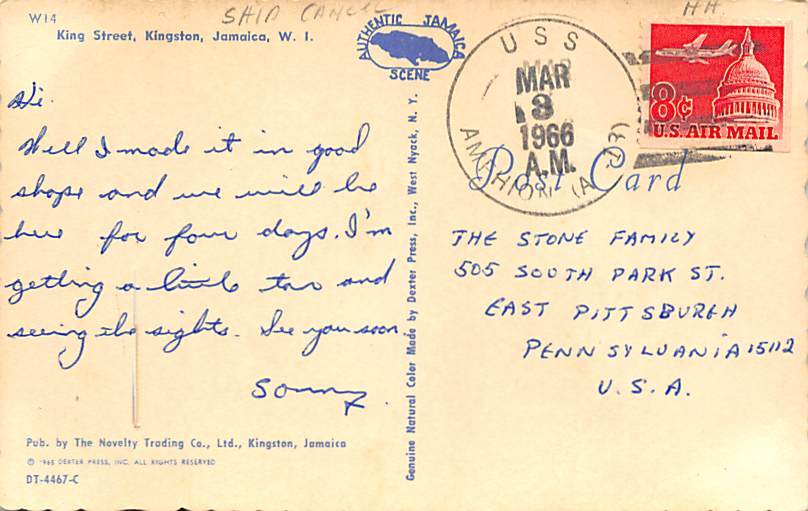 W14
SHIP CANCEL
HH
King Street, Kingston, Jamaica, W. I.
AUTHENTIC JAMAICA
SCENE
USS
MAR
3
1966
A.M.
8¢
U.S. AIR MAIL
Post Card
Hi.
Well I made it in good
shape and we will be
here for four days. I'm
getting a little tan and
seeing the sights. See you soon.
Sonny
THE STONE FAMILY
505 SOUTH PARK ST.
EAST PITTSBURGH
PENNSYLVANIA 15112
U.S.A.
Genuine Natural Color Made by Dexter Press, Inc., West Nyack, N. Y.
Pub. by The Novelty Trading Co., Ltd., Kingston, Jamaica
© 1965 DEXTER PRESS, INC. ALL RIGHTS RESERVED
DT-4467-C